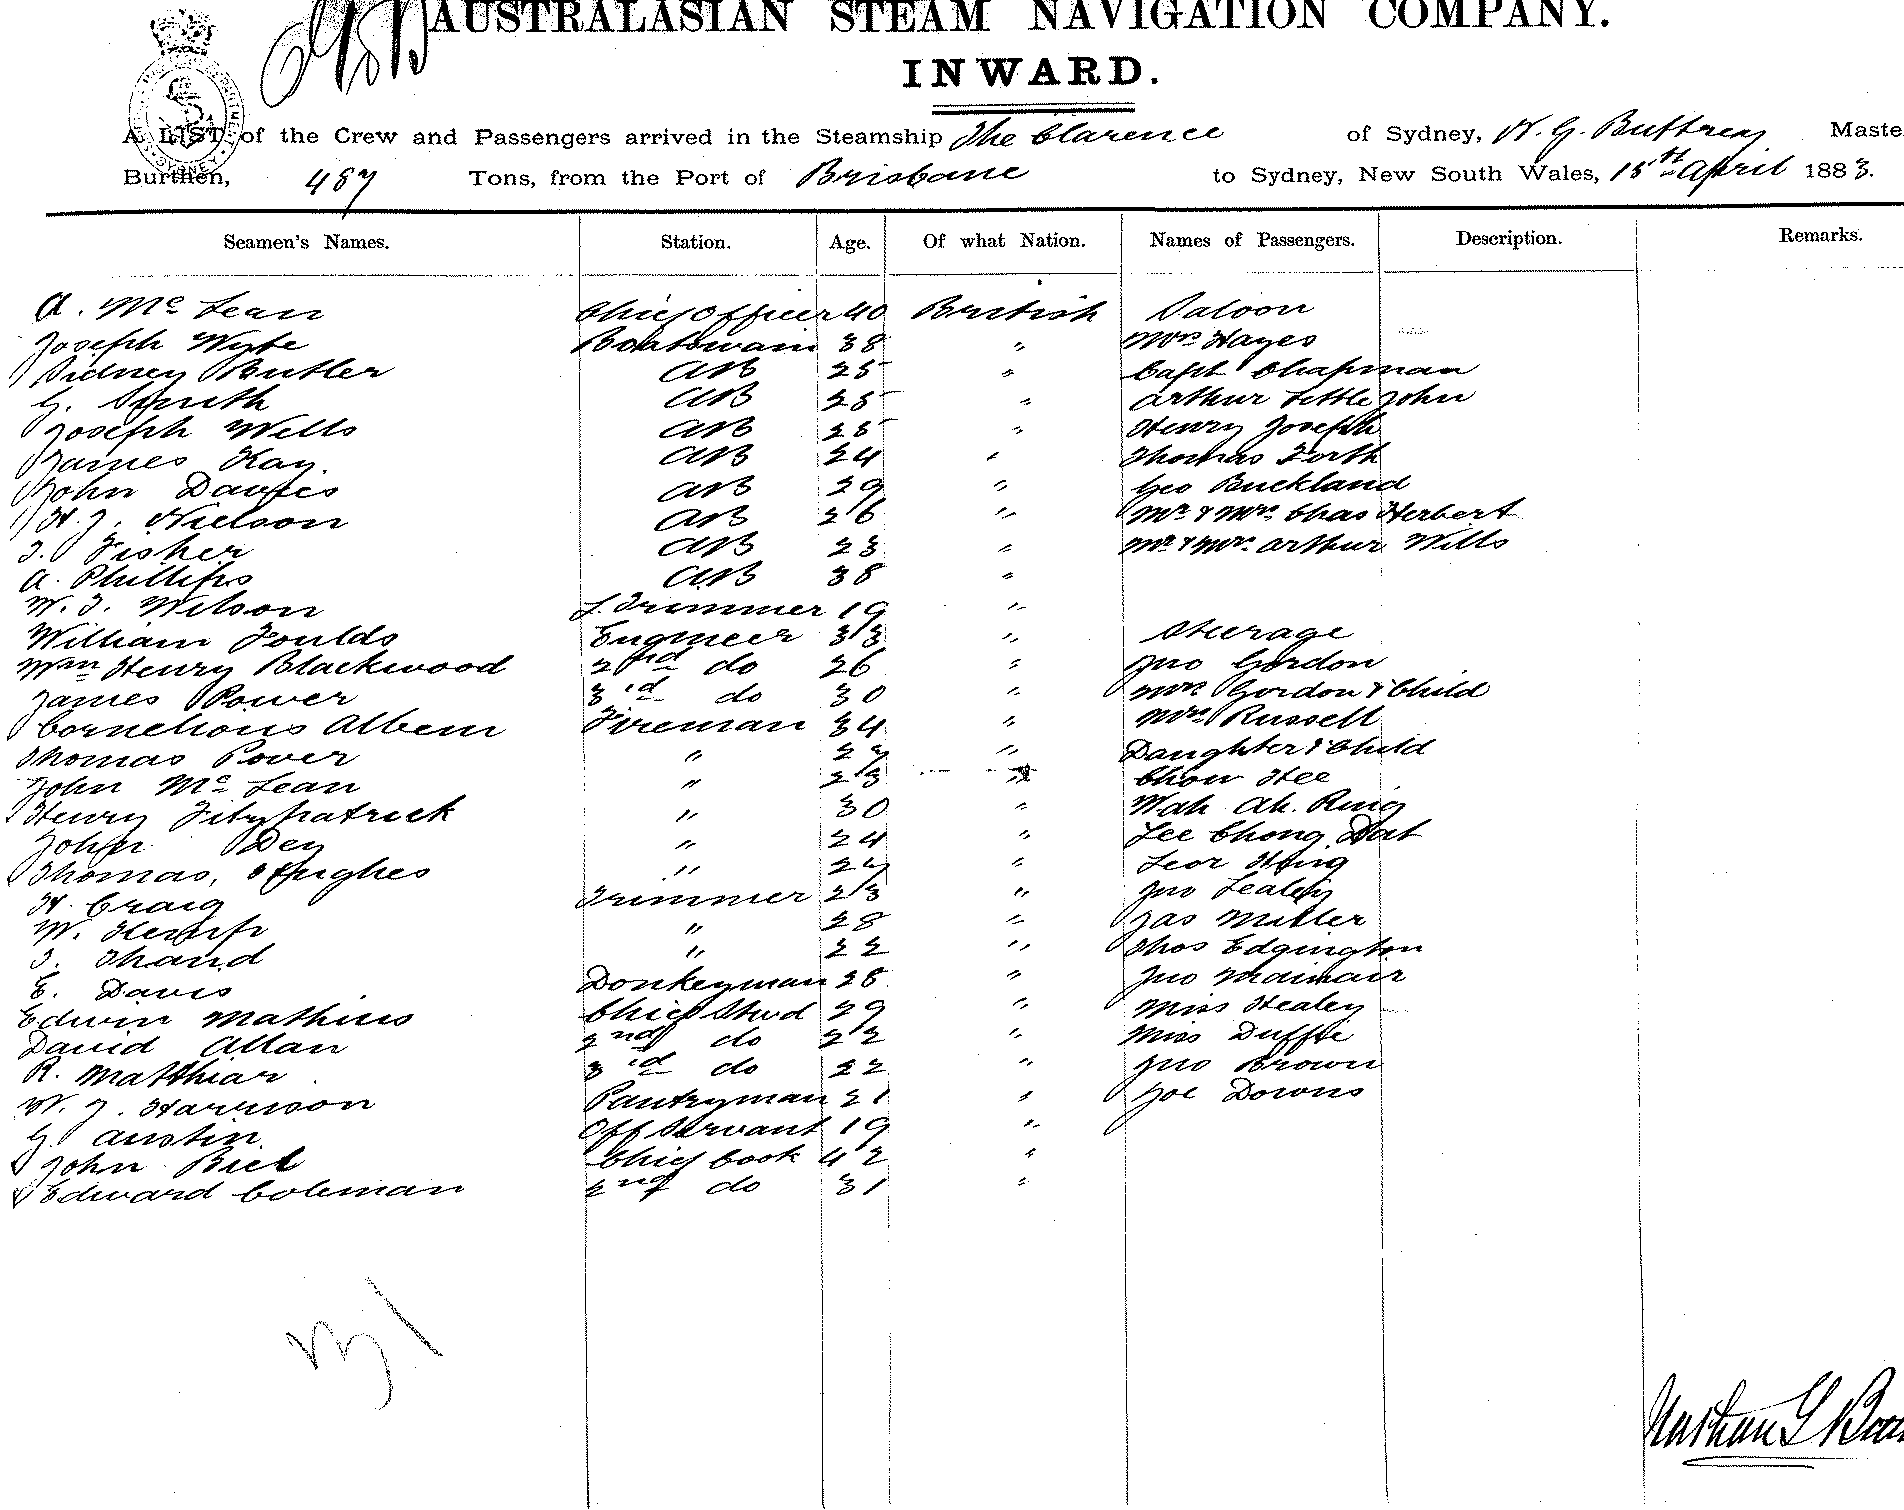 AUSTRALASIAN STEAM NAVIGATION COMPANY.
INWARD.
A LIST of the Crew and Passengers arrived in the Steamship The Clarence of Sydney, N. G. Buttrey Maste
Burthen, 487 Tons, from the Port of Brisbane to Sydney, New South Wales, 15th April 1883.
Seamen's Names. Station. Age. Of what Nation. Names of Passengers. Description. Remarks.
A. Mc Lean Chief Officer 40 British Saloon
Joseph Wybe Boatswain 38 " Mrs Hayes
Sidney Butler AB 25 " Capt Chapman
G. Smith AB 25 " Arthur Little John
Joseph Wells AB 25 " Henry Joseph
James Kay. AB 24 " Thomas Forth
John Davies AB 29 " Geo Buckland
H. J. Nielson AB 26 " Mr & Mrs Chas Herbert
J. Fisher AB 23 " Mr & Mrs Arthur Wills
A. Phillips AB 38 "
W. J. Wilson L. Trimmer 19 "
William Foulds Engineer 33 " Steerage
Wm Henry Blackwood 2nd do 26 " Jno Gordon
James Power 3rd do 30 " Mrs Gordon & Child
Cornelious Albem Fireman 34 " Mrs Russell
Thomas Pover " 27 " Daughter & Child
John Mc Lean " 23 " Chow Hee
Henry Fitzpatrick " 30 " Wah Ah. Ring
John Dey " 24 " Lee Chong Dat
Thomas, Hughes " 27 " Leor Hing
H. Craig Trimmer 23 " Jno Lealey
W. Hemp " 28 " Jas Miller
J. Thand " 22 " Thos Edgington
E. Davis Donkeyman 28 " Jno
Edwin Mathius Chief Stwd 29 " Miss Healey
David Allan 2nd do 22 " Miss Duffie
R. Matthiar 3rd do 22 " Jno Brown
W. J. Harrison Pantryman 21 " Joe Downs
G. Austin. Off Servant 19 "
John Biel Chief Cook 42 "
Edward Coleman 2nd do 31 "
31
Nathan G